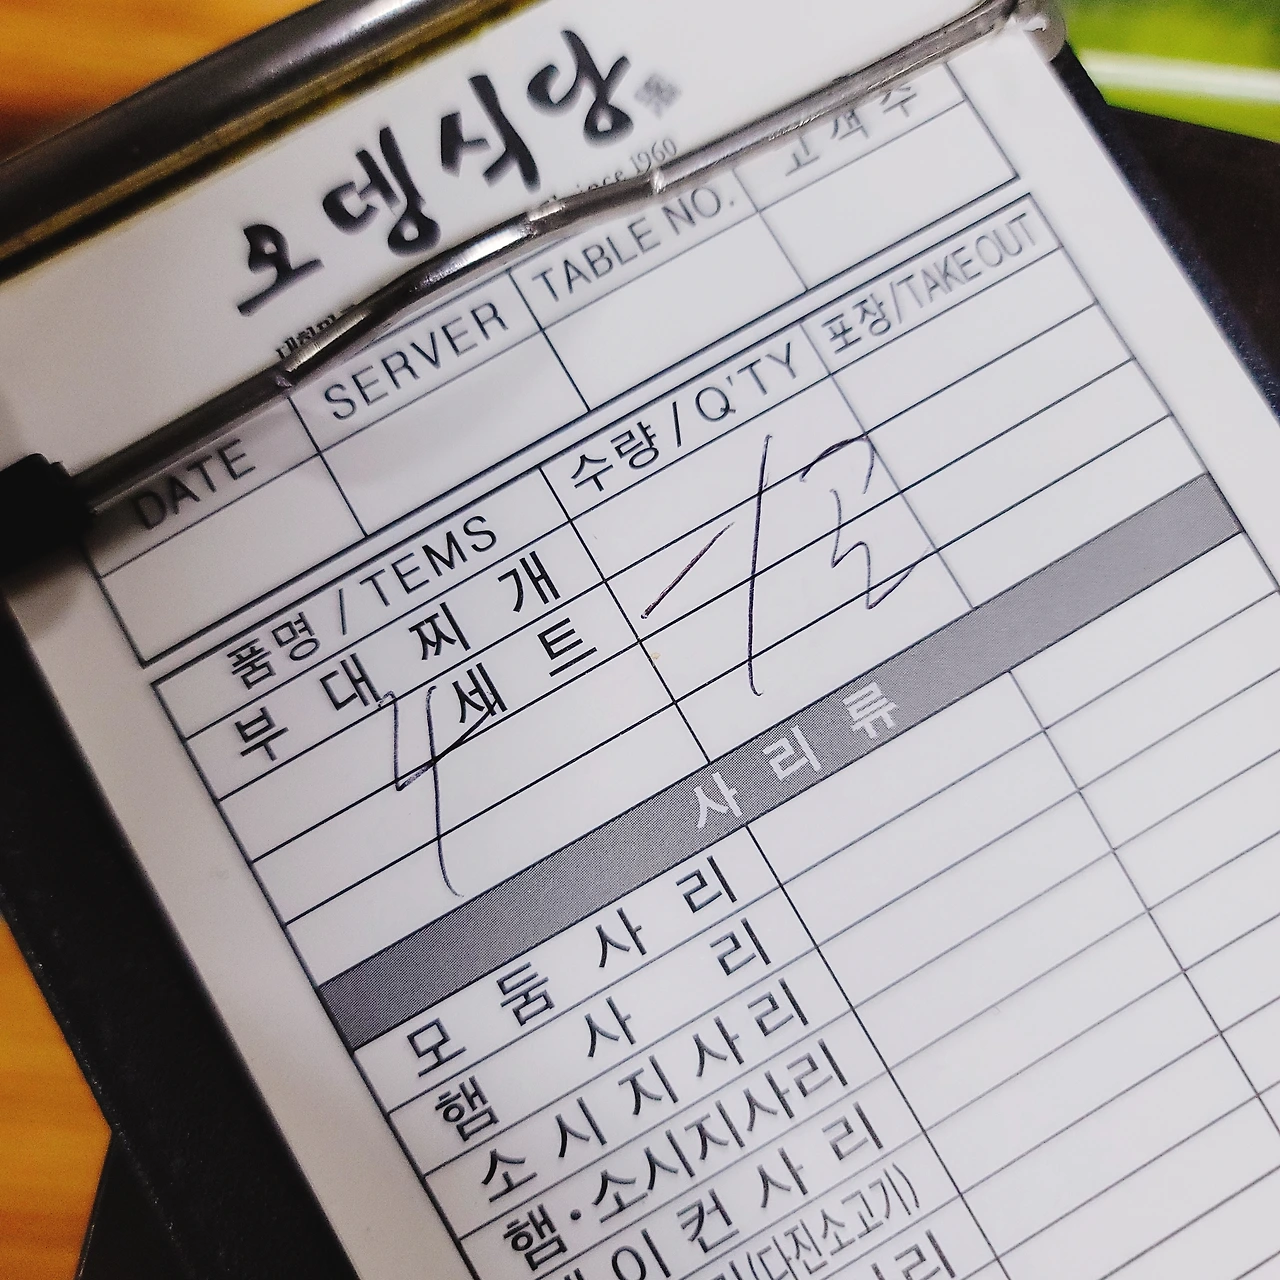 오뎅식당
since 1960
DATE SERVER TABLE NO. 고객수
품명/ITEMS 수량/Q'TY 포장/TAKE OUT
부대찌개
세트
4
사리류
모둠사리
햄사리
소시지사리
햄·소시지사리
베이컨사리
(다진소고기)
리